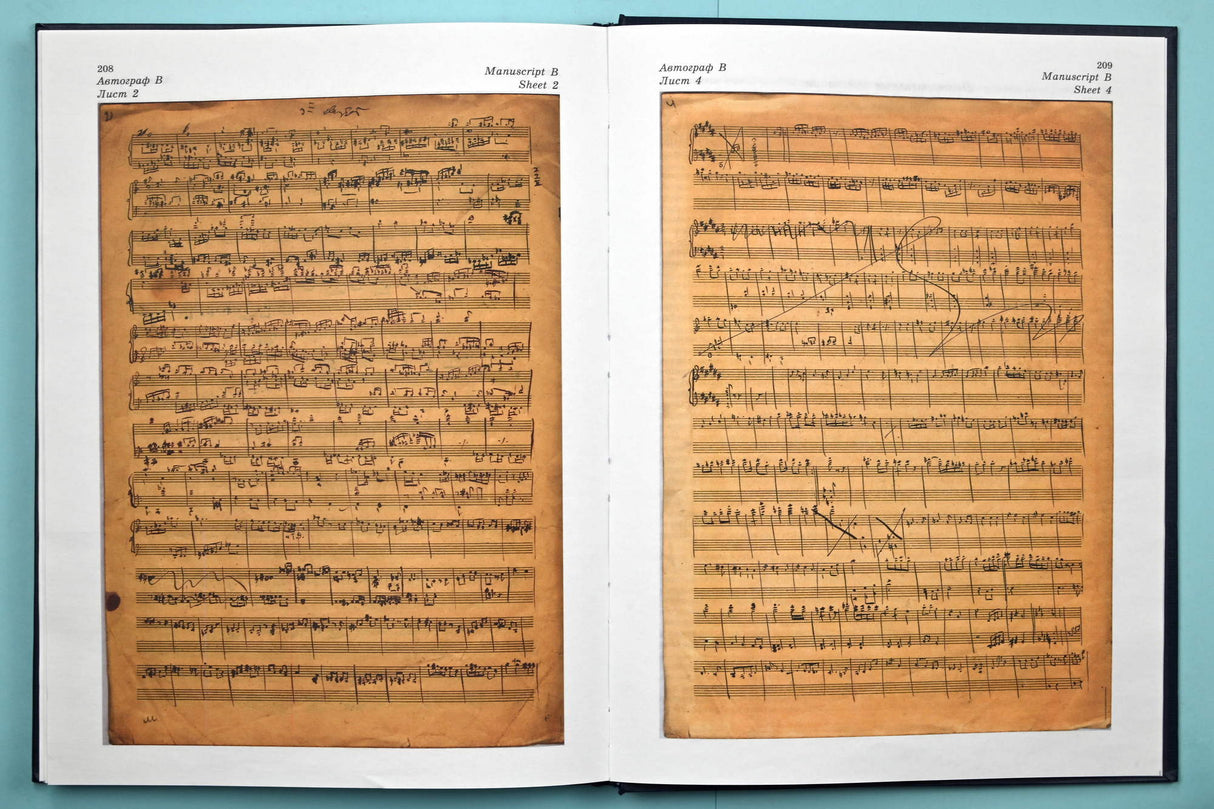 208
Автограф В
Лист 2
Manuscript B
Sheet 2
Автограф В
Лист 4
209
Manuscript B
Sheet 4
4